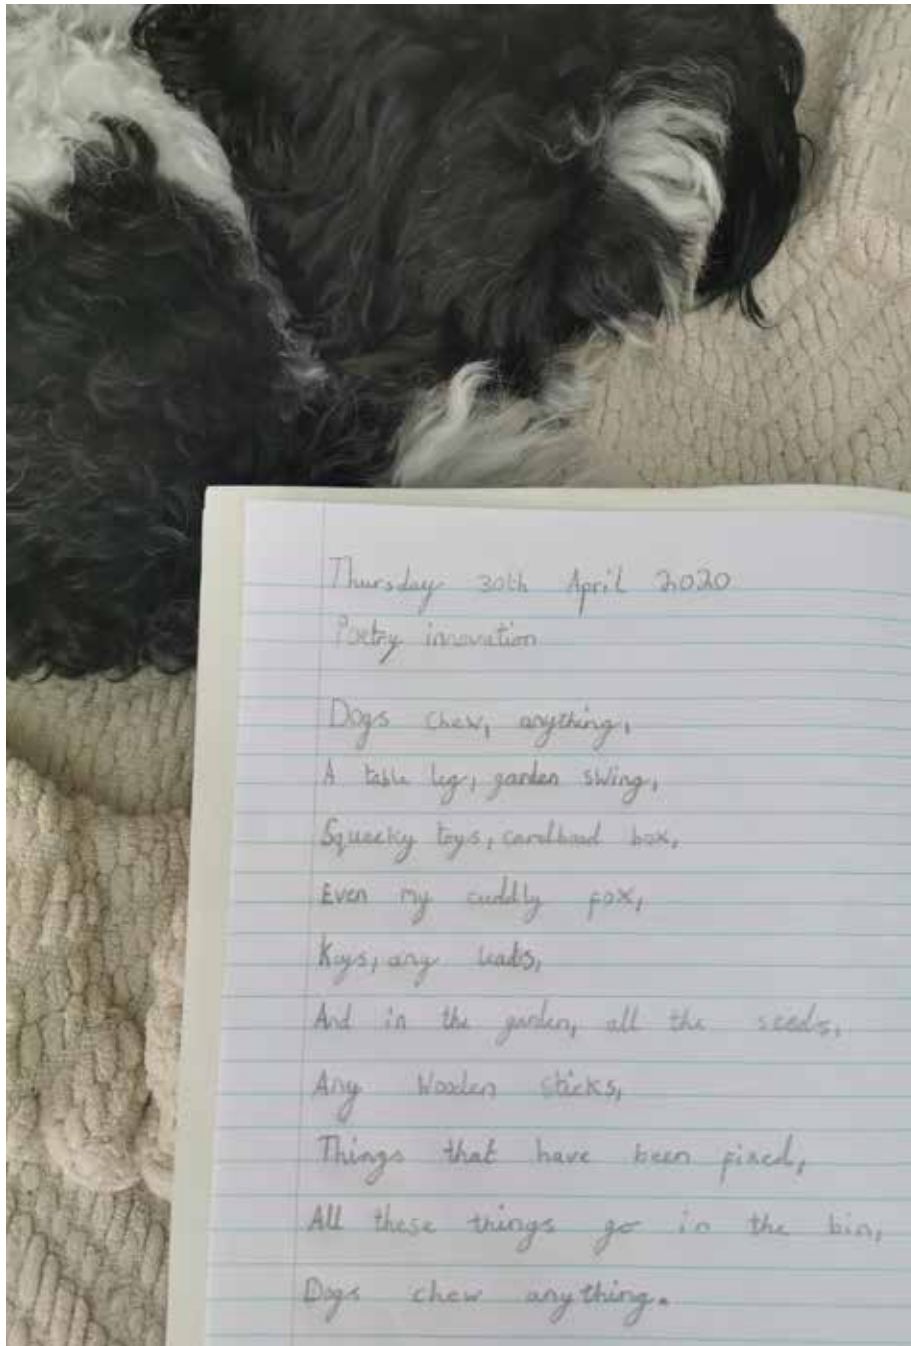 Thursday 30th April 2020
Poetry innovation
Dogs chew, anything,
A table leg, garden swing,
Squeeky toys, cardboard box,
Even my cuddly fox,
Keys, any leads,
And in the garden, all the seeds,
Any wooden sticks,
Things that have been fixed,
All these things go in the bin,
Dogs chew anything.